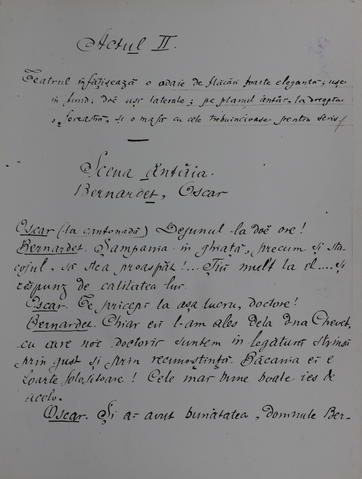 Actul II.
Teatrul înfățișează o odaie de flăcău foarte elegantă; ușe
în fund; doă uși laterale; pe planul ântâi, la dreapta
o fereastră, și o masă cu cele trebuincioase pentru scris/
Scena ântâia.
Bernardet, Oscar
Oscar (la cantonadă) Dejunul la doă ore!
Bernardet. Șampania în ghiață, precum și sta-
cojul. să stea proaspăt!... Țiu mult la el.... și
răspunz de calitatea lui.
Oscar. Te pricepi la așa lucru, doctore!
Bernardet. Chiar eu l-am ales dela dna Chevet,
cu care noi doctorii suntem în legătură strânsă
prin gust și prin recunoștință. Băcania ei e
foarte folositoare! Cele mai bune boale ies de
acolo.
Oscar. Și a-avut bunătatea, domnule Ber-